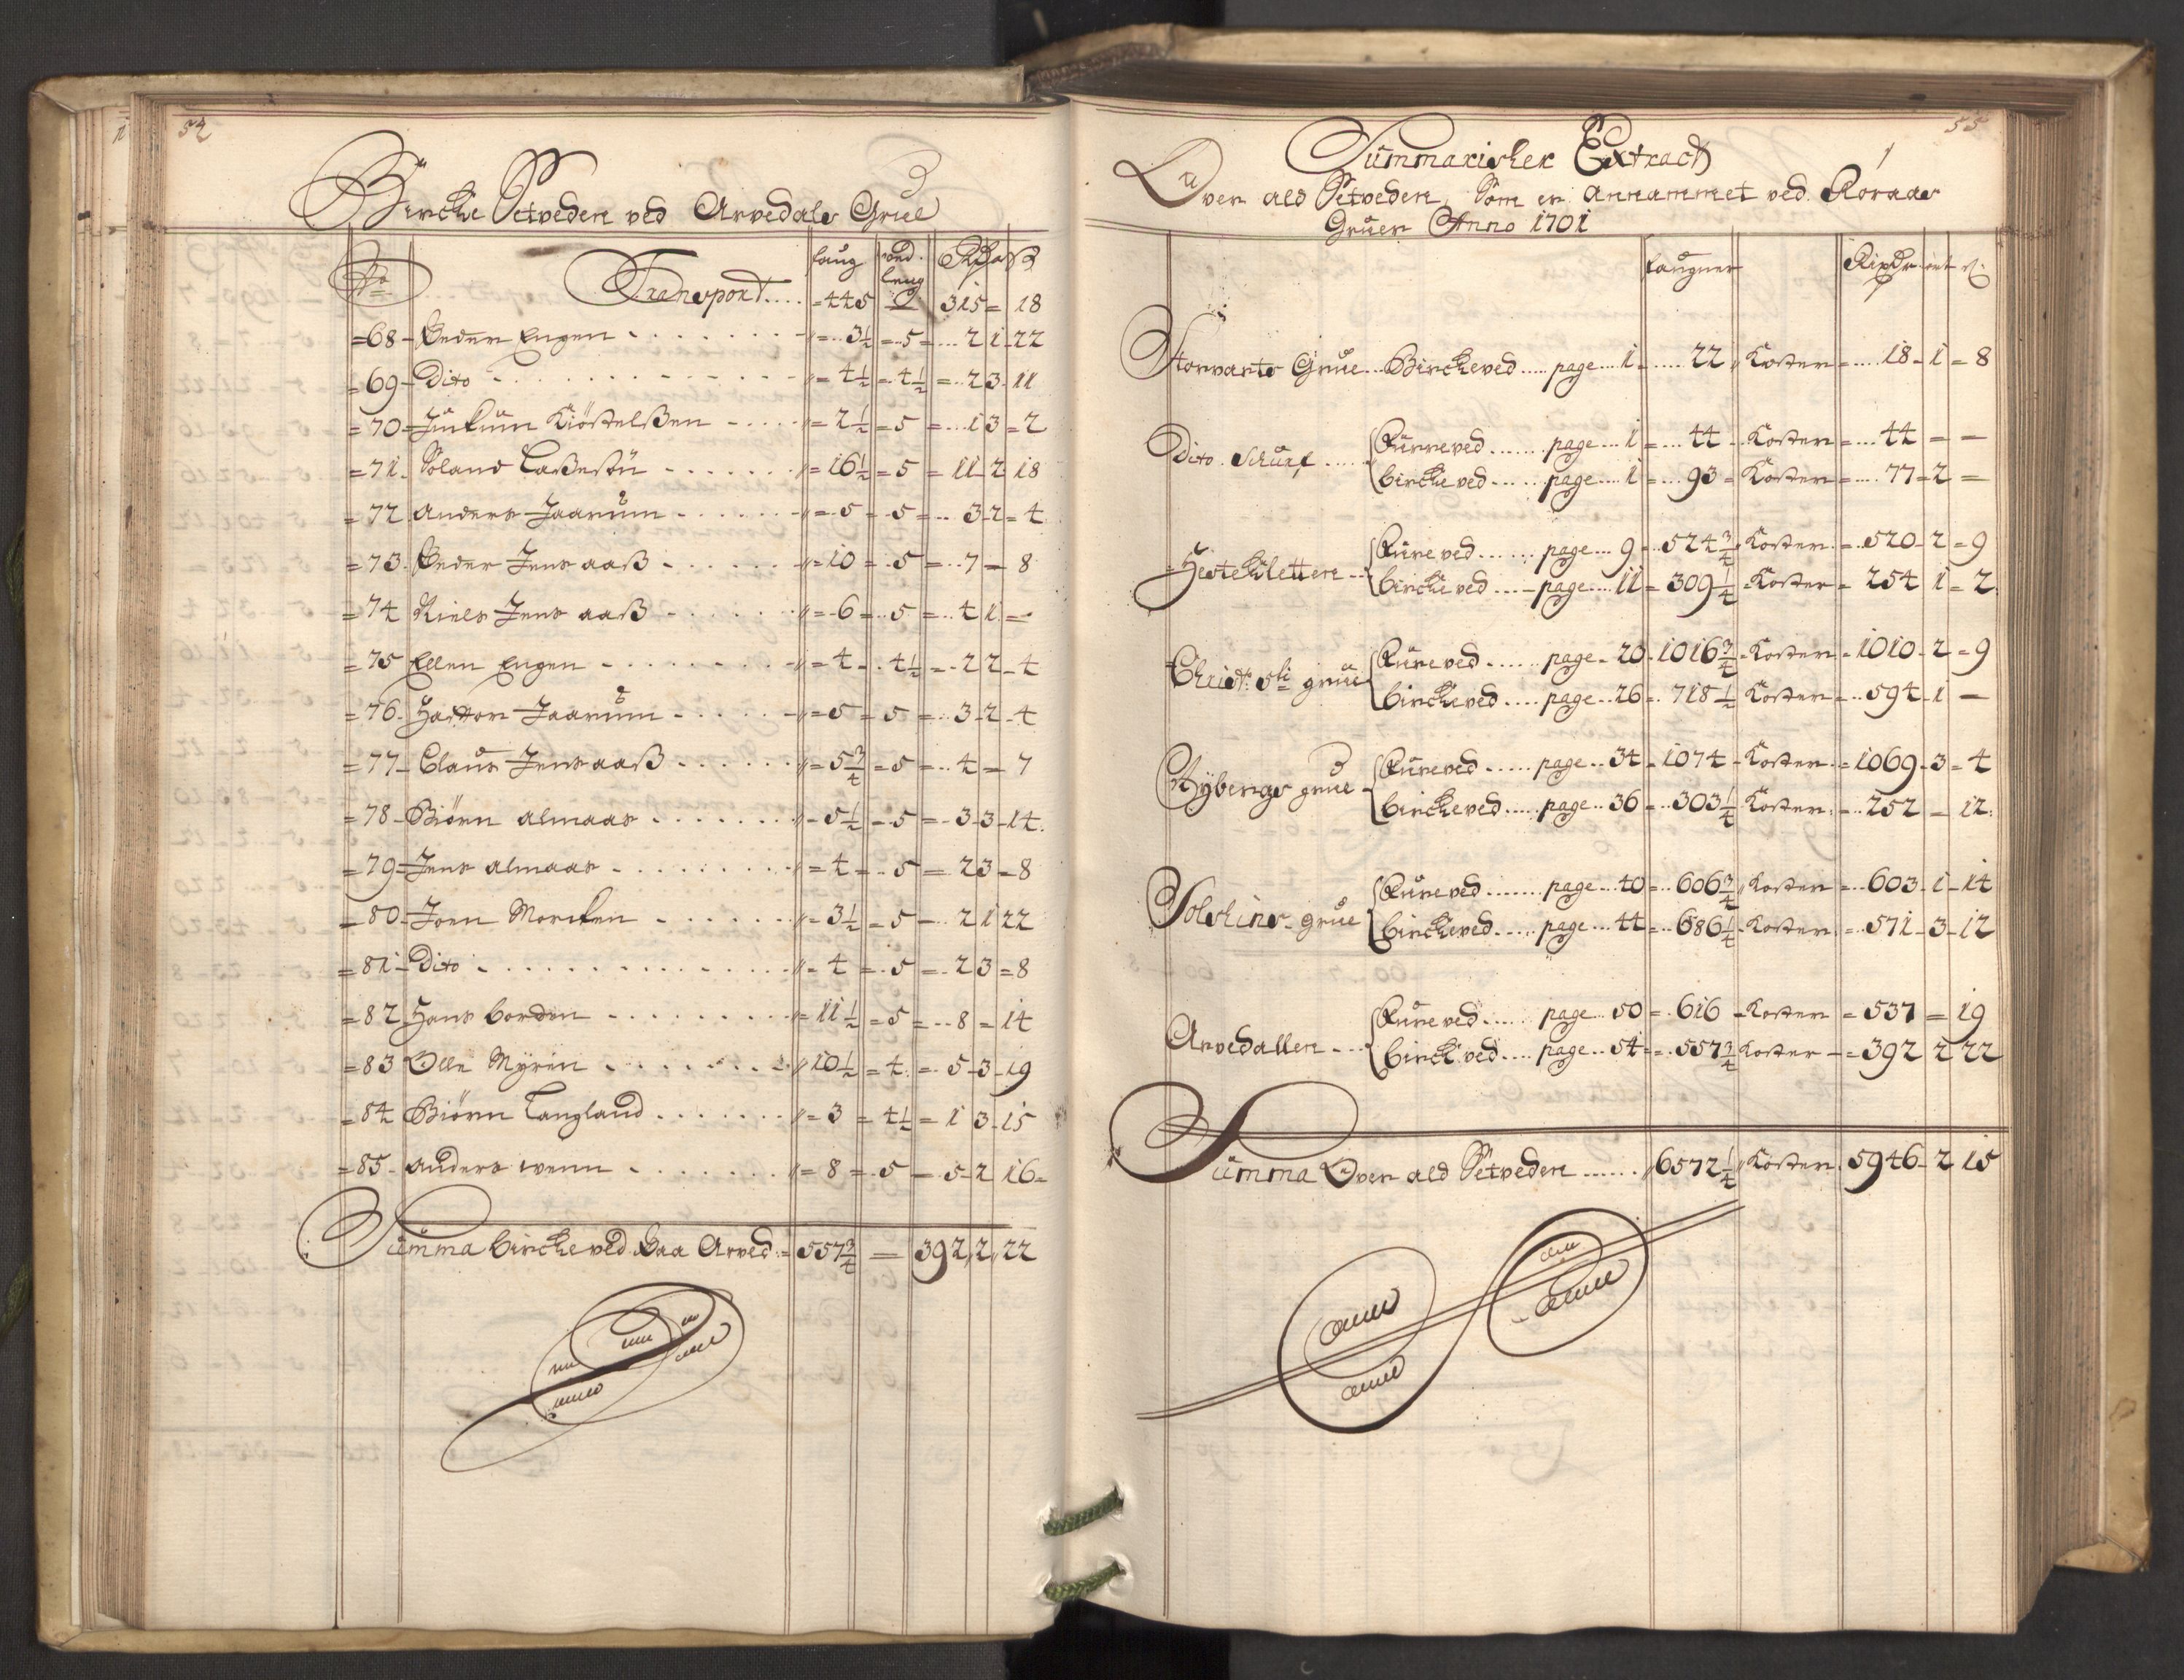 54
Bircke Setveden ved Arvedals Grue
No faug ved leng Rdr ß
Transport .... = 445 — 315 = 18
= 68 - Peder Engen - = 3½ = 5 = 2 1 22
= 69 - Dito - = 4½ = 4½ = 2 3 11
= 70 = Kiöstelßen - = 2½ = 5 = 1 3 = 2
= 71 - = 16½ = 5 = 11 2 18
= 72 Anders Jaarum - = 5 = 5 = 3 2 = 4
= 73 - Peder Jens aaß - = 10 = 5 = 7 — 8
= 74 Niels Jens aaß - = 6 = 5 = 4 1 =
= 75 Ellen Engen - = 4 - 4½ = 2 2 - 4
= 76 - Jaarum - = 5 = 5 = 3 - 2 - 4
= 77 - Claus Jens aaß - = 5¾ = 5 = 4 — 7
= 78 - Biörn Almaas - = 5½ = 5 = 3 - 3 - 14
= 79 = Jens Almaas - = 4 = 5 = 2 3 = 8
= 80 - Joen Morcken - = 3½ = 5 = 2 1 22
= 81 - Dito - = 4 = 5 = 2 3 = 8
= 82 Hans Borden - = 11½ = 5 = 8 = 14
= 83 Olle Myren - 10½ = 4 = 5 - 3 - 19
= 84 Biörn Langland - = 3 = 4½ = 1 3 - 15
= 85 - Anders wenn - = 8 = 5 = 5 - 2 16
Summa bircke ved Paa Arved = 557¾ — 392, 2, 22
55
Summarisker Extract
Over ald Setveden, Som er Annammet ved Röraas
Gruer Anno 1701
faugner Rixdr ort s.
Storvarts Grue Bircke ved ..... page .... 1 = 22 Koster = 18 - 1 = 8
Dito Schurf Fürreved ....... page .... 1 = 44 - Koster = 44 = —
bircke ved ...... page .... 1 = 93 = Koster = 77 - 2 =
Hesteklettern Fureved ...... page ... 9 = 524¾ Koster = 520 - 2 = 9
bircke ved .... page .... 11 = 309¼ Koster = 254 1 = 2
Christ: 5ti grue Fureved ...... page - 20 - 1016¾ Koster = 1010 - 2 = 9
bircke ved .... page .. 26 = 718½ Koster = 594 - 1 —
Nybergs grue Fureved ..... page .. 34 = 1074 - Koster = 1069 - 3 = 4
bircke ved ..... page .. 36 = 303¼ Koster = 252 — 12
Solskins grue Fureved ....... page ... 40 = 606¾ Koster = 603 - 1 - 14
bircke ved ..... page ... 44 = 686¼ Koster = 571 - 3 - 12
Arvedallen Fureved ..... page .. 50 = 616 - Koster = 537 = 19
birck ved .... page .. 54 = 557¾ Koster = 392 2 22
Summa Over ald Setveden ...... 6572¼ Koster 5946 - 2 15